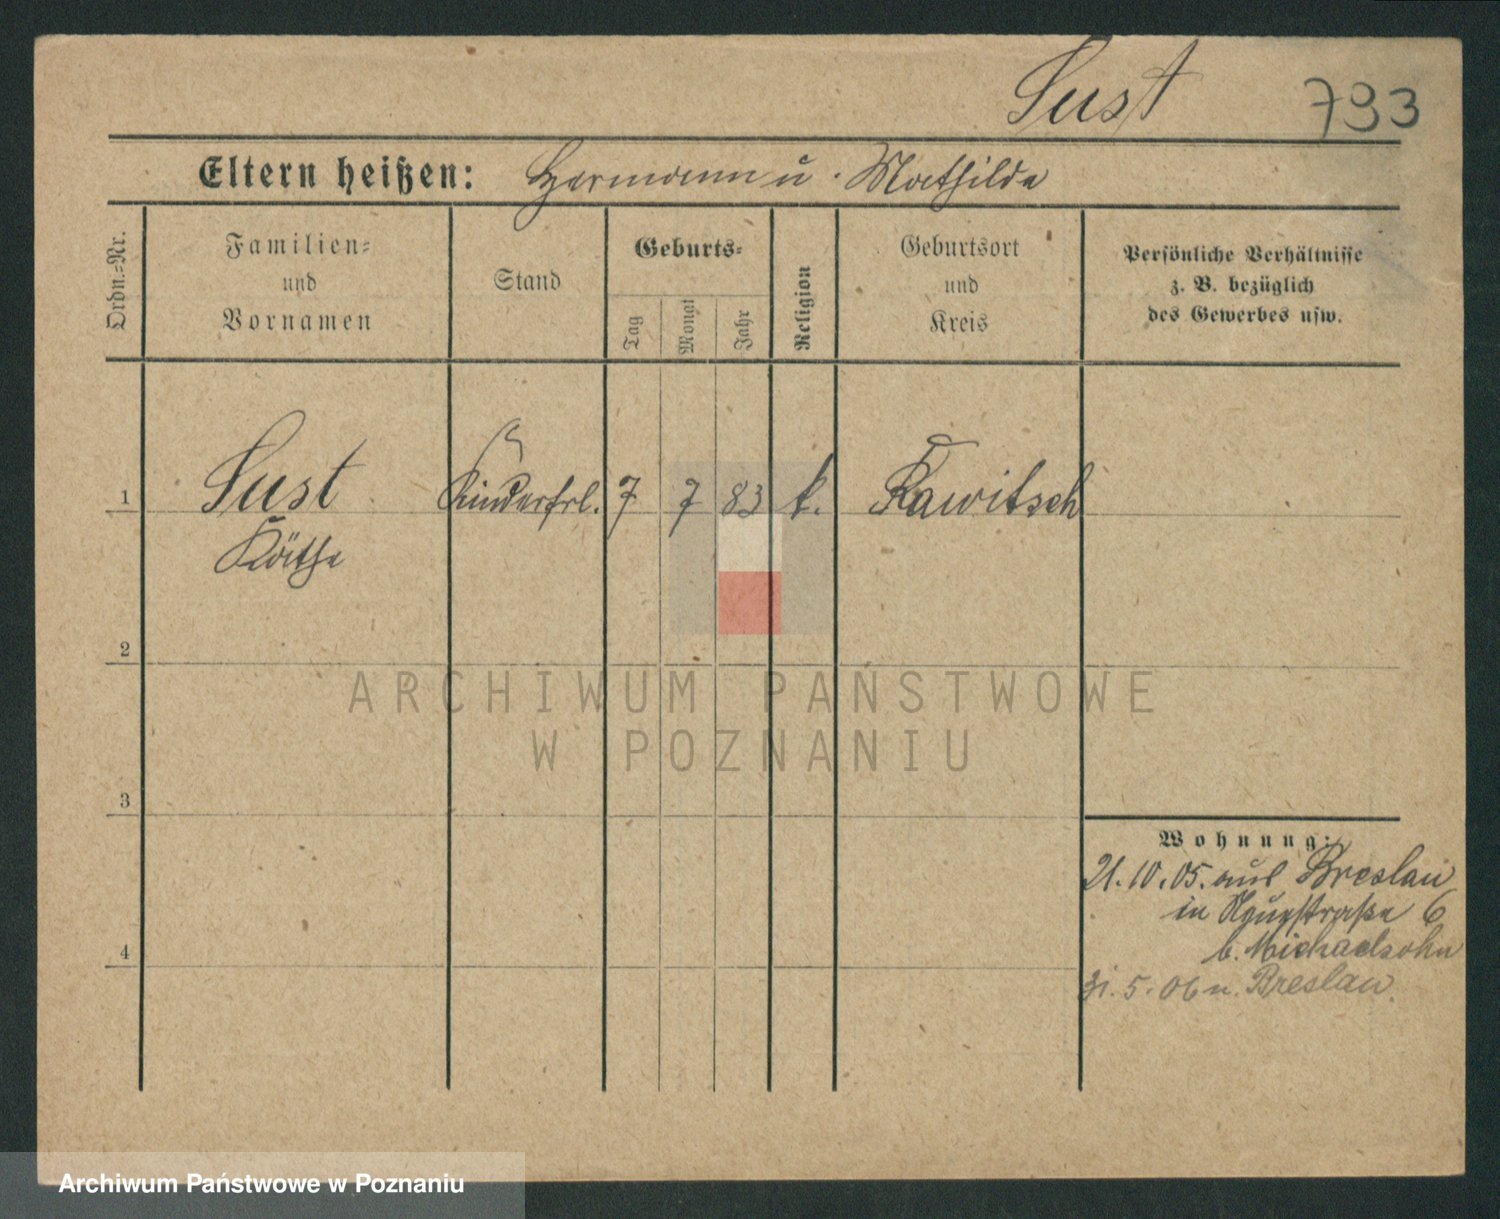 Sust 793
Eltern heißen: Hermann u. Mathilde
Ordn.-Nr.
Familien-
und
Vornamen
Stand
Geburts-
Tag
Monat
Jahr
Religion
Geburtsort
und
Kreis
Persönliche Verhältnisse
z. B. bezüglich
des Gewerbes usw.
1 Sust Kinderfrl. 7 7 83 k. Rawitsch
Käthe
2
3
4
Wohnung:
21.10.05. aus Breslau
in 6
b. Michaelsohn
31.5.06 n. Breslau.
ARCHIWUM PAŃSTWOWE
W POZNANIU
Archiwum Państwowe w Poznaniu